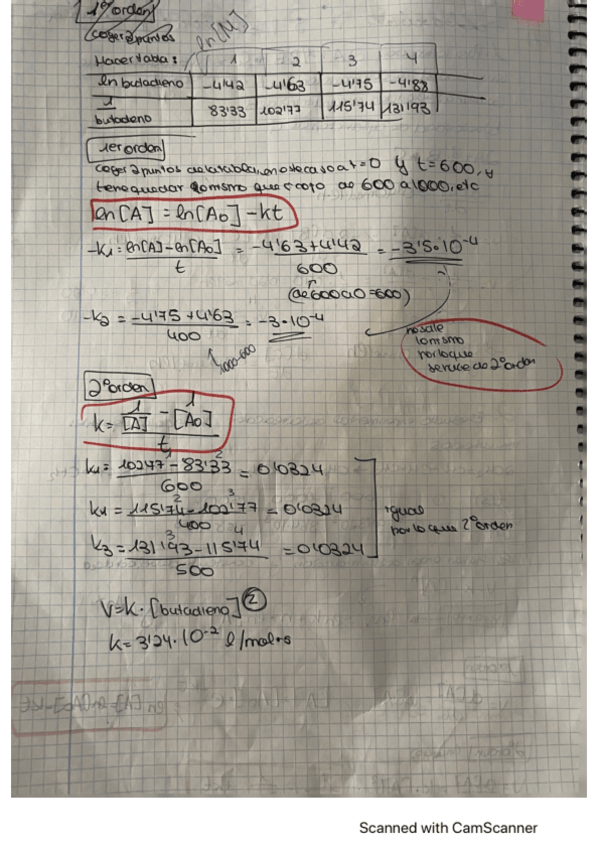 1ºorden
coger 2 puntos
ln[A]
Hacer tabla: 1 2 3 4
ln butadieno -4'42 -4'63 -4'75 -4'88
1/butadieno 83'33 102'77 115'74 131'93
1er orden
coger 2 puntos de la tabla, en este caso a t=0 y t=600, y
tiene quedar lo mismo que si cojo de 600 a 1000, etc
ln[A] = ln[A0] - kt
-k1 = ln[A] - ln[A0] / t = -4'63 + 4'42 / 600 = -3'5·10^-4
(de 600 a 0 = 600)
-k2 = -4'75 + 4'63 / 400 = -3·10^-4
1000-600
no sale
lo mismo
por lo que
será de 2º orden
2º orden
k = 1/[A] - 1/[A0] / t
k1 = 102'77 - 83'33 / 600 = 0'0324
k1 = 115'74 - 102'77 / 400 = 0'0324
k3 = 131'93 - 115'74 / 500 = 0'0324
igual
por lo que 2º orden
V = k · [butadieno]②
k = 3'24·10^-2 l/mol·s
Scanned with CamScanner